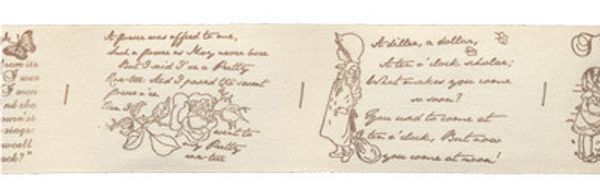 from its
I was
A flower was offerd to me,
Such a flower as May never bore
But I said I've a Pretty
Rose-tree And I passed the sweet
flower o'er
Then I
went to
my Pretty
rose-tree
A diller, a dollar,
A ten o'clock scholar;
What makes you come
so soon?
You used to come at
ten o'clock, But now
you come at noon!